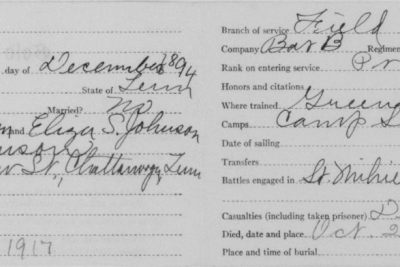 day of December 1894
State of Tenn
Married? No
and Eliza S. Johnson
St, Chattanooga, Tenn
1917
Branch of service Field
Company Bat B Regiment
Rank on entering service Pr
Honors and citations
Where trained Green
Camps Camp S
Date of sailing
Transfers
Battles engaged in St. Mihie
Casualties (including taken prisoner) D
Died, date and place Oct. 2
Place and time of burial